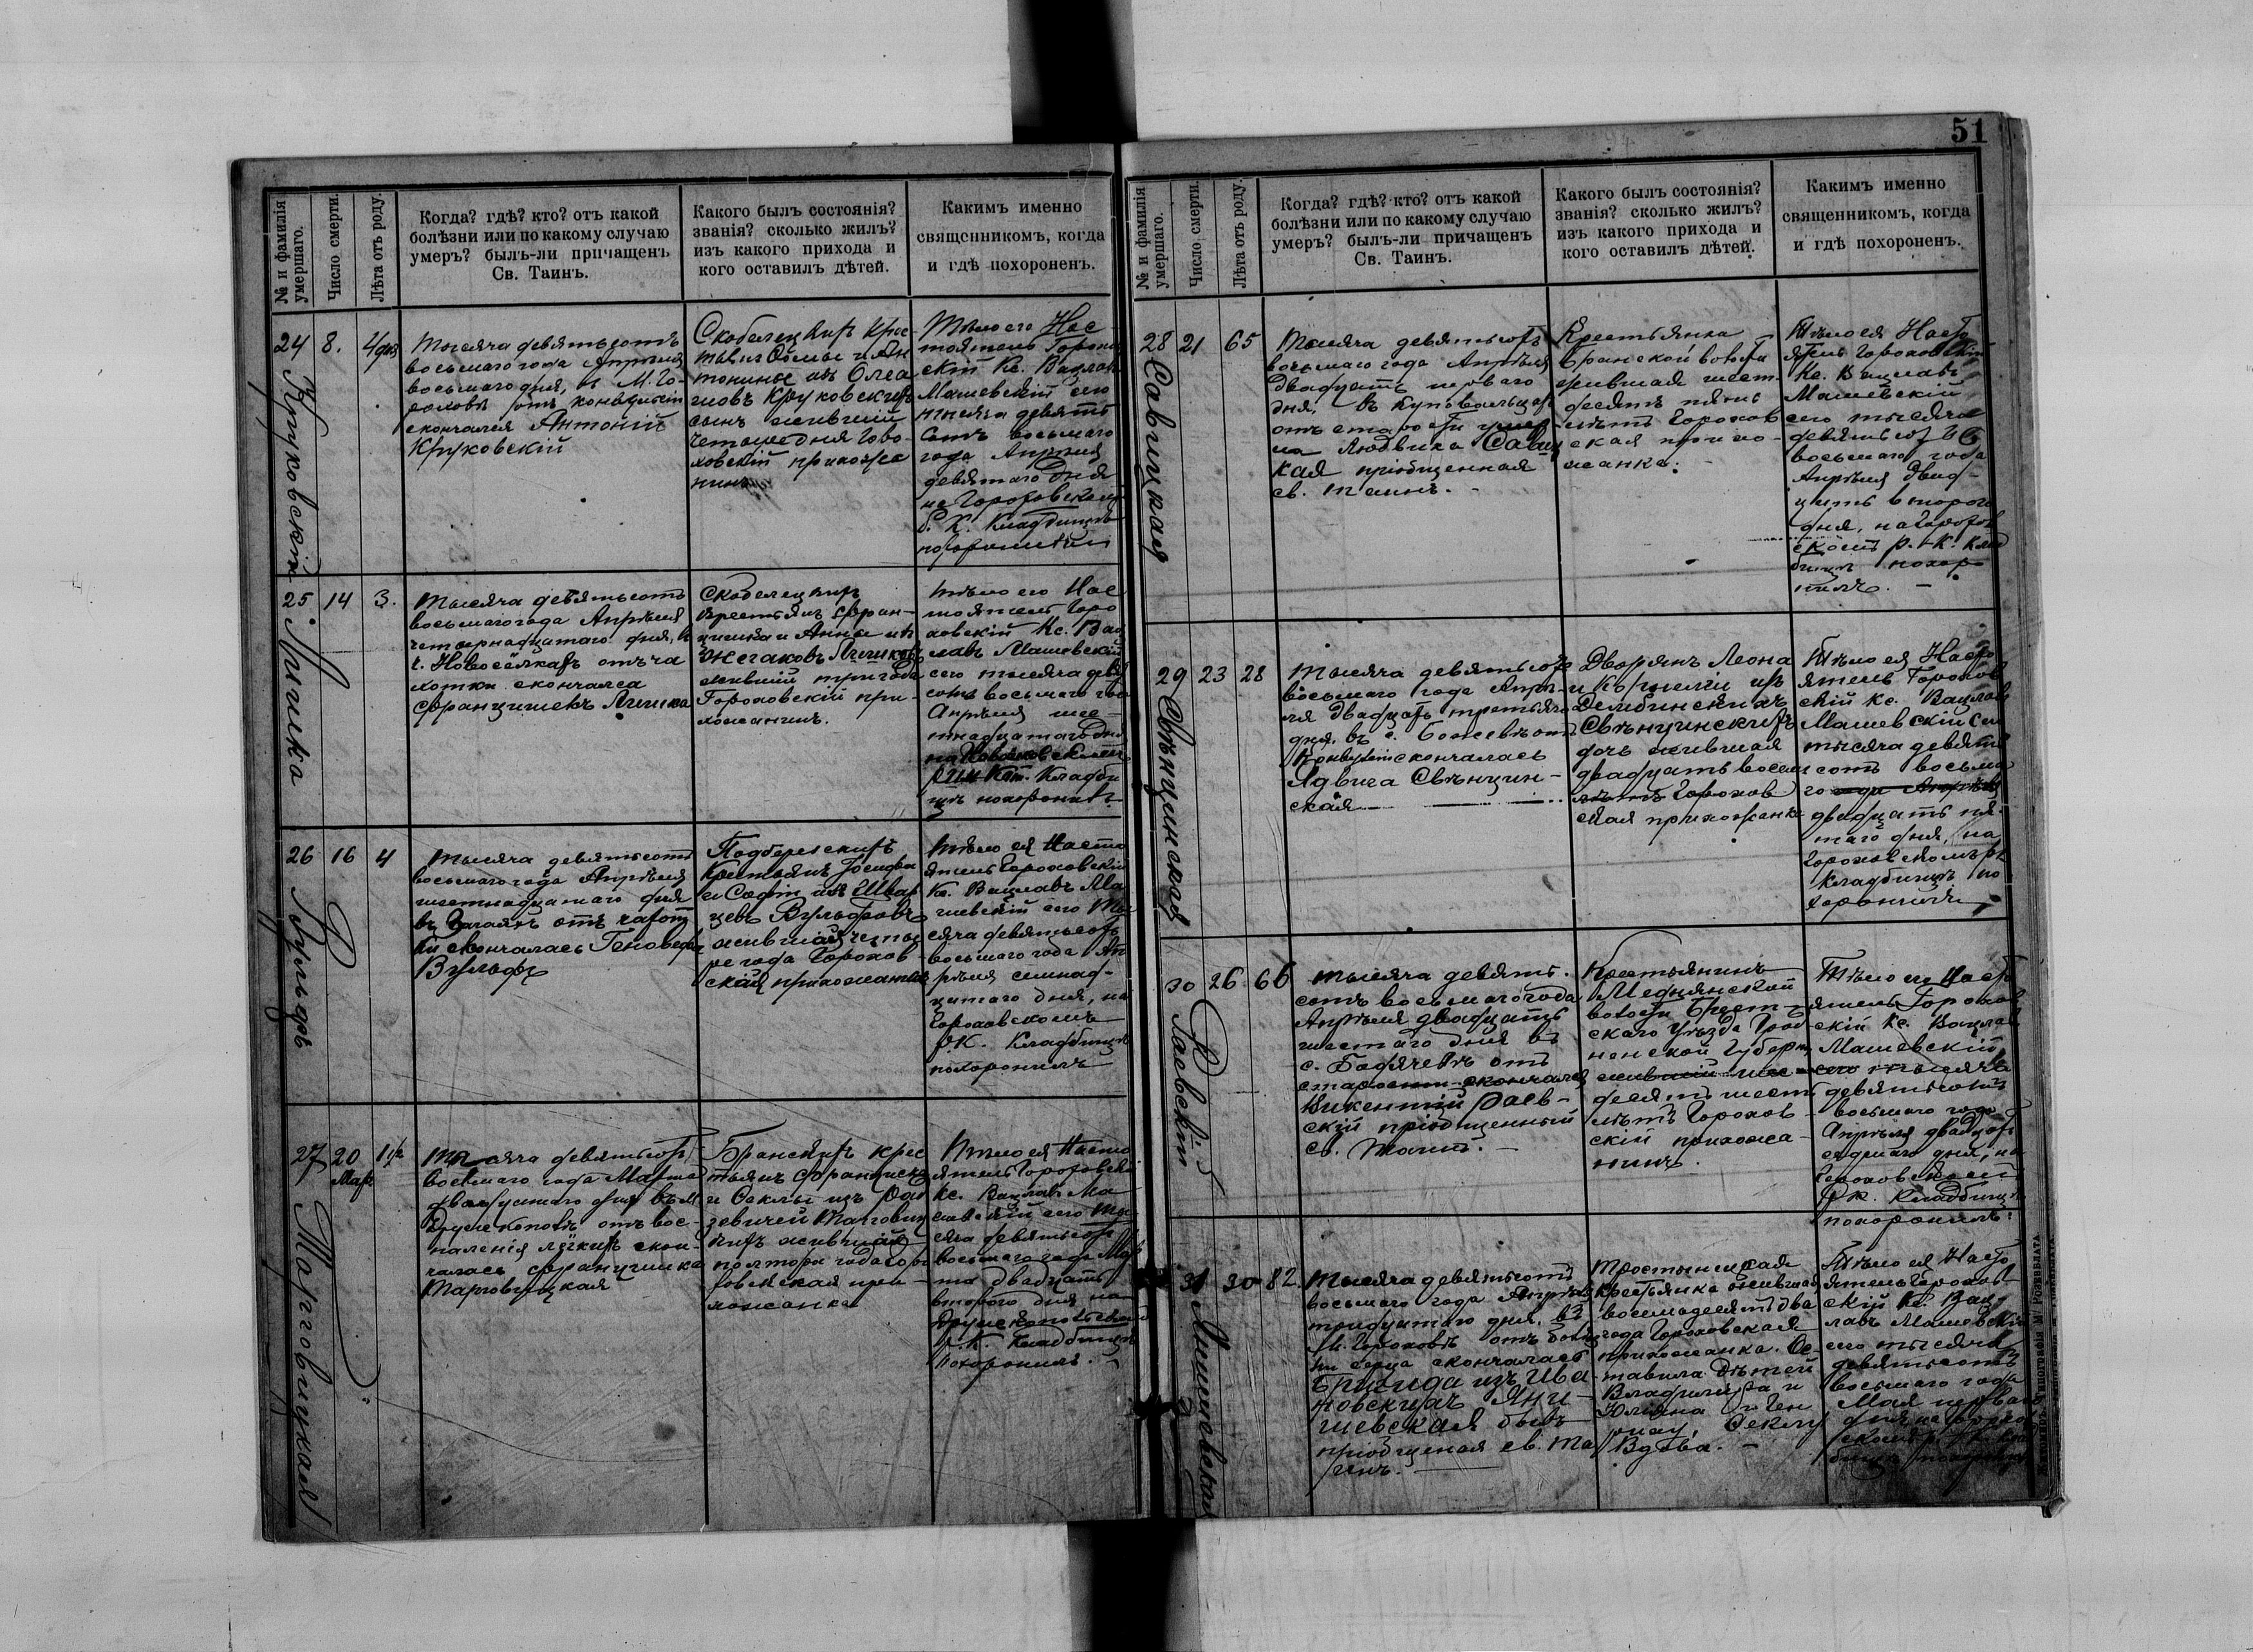 51
№ и фамилія умершаго.
Число смерти.
Лѣта отъ роду.
Когда? гдѣ? кто? отъ какой
болѣзни или по какому случаю
умеръ? былъ-ли причащенъ
Св. Таинъ.
Какого былъ состоянія?
званія? сколько жилъ?
изъ какого прихода и
кого оставилъ дѣтей.
Какимъ именно
священникомъ, когда
и гдѣ похороненъ.
24
Круковскій
8.
4 дня
Тысяча девятьсотъ
восьмаго года Апрѣля
восьмаго дня, в М. Го-
роховѣ отъ конвульсіи
скончался Антоній
Круковскій
Скобелецкихъ Крес
тьянъ и Ан
тонины изъ
Круковскихъ
сынъ жившій
четыре дня Горо-
ховскій прихожа
нинъ
Тѣло его Нас
тоятель Горохов
скій Кс. Вацлавъ
Машевскій сего
тысяча девять
сотъ восьмаго
года Апрѣля
девятаго дня
на Гороховскомъ
Р. К. Кладбищѣ
похоронилъ
25
Лишка
14
3.
Тысяча девятьсотъ
восьмаго года Апрѣля
четырнадцатаго дня, в
с. Новосёлкахъ отъ ча
хотки скончался
Францишекъ Лишка
Скобелецкихъ
крестьянъ Фран-
цишка и Анны изъ
Лишковъ
жившій три года
Гороховскій при-
хожанинъ.
Тѣло его Нас
тоятель Горо
ховскій Кс. Вац
лавъ Машевскій
сего тысяча девять
сотъ восьмаго года
Апрѣля шес-
тнадцатаго дня
на
Кладби
щѣ похоронилъ
26
Вульфъ
16
4
Тысяча девятьсотъ
восьмаго года Апрѣля
шестнадцатаго дня
въ отъ
скончалась Геновефа
Вульфъ
Подберезскихъ
Крестьянъ Іосифа
и Софіи изъ Швар
цевъ Вульфовъ
жившая четы
ре года Горохов
ская прихожанка
Тѣло ея Насто
ятель Гороховскій
Кс. Вацлавъ Ма
шевскій сего Ты
сяча девятьсотъ
восьмаго года Ап
рѣля семнад-
цатаго дня, на
Гороховскомъ
Р.К. Кладбищѣ
похоронилъ
27
Тарговицкая
20
Мар
1½
Тысяча девятьсотъ
восьмаго года Марта
двадцатаго дня въ М.
Дружкополѣ отъ вос-
паленія лёгкихъ скон-
чалась Францишка
Тарговицкая
Бранскихъ крес
тьянъ Францишка
и Феклы изъ
Тарговиц
кихъ жившая
полтора года Горо
ховская при-
хожанка
Тѣло ея Насто
ятель Гороховскій
Кс. Вацлавъ Ма
шевскій сего Ты
сяча девятьсотъ
восьмаго года Мар
та двадцать
втораго дня на
Дружкопольскомъ
Р.К. Кладбищѣ
похоронилъ. -
№ и фамилія умершаго.
Число смерти.
Лѣта отъ роду.
Когда? гдѣ? кто? отъ какой
болѣзни или по какому случаю
умеръ? былъ-ли причащенъ
Св. Таинъ.
Какого былъ состоянія?
званія? сколько жилъ?
изъ какого прихода и
кого оставилъ дѣтей.
Какимъ именно
священникомъ, когда
и гдѣ похороненъ.
28
Савицкая
21
65
Тысяча девятьсотъ
восьмаго года Апрѣля
двадцать перваго
дня, въ
отъ старости умер
ла Людвика Савиц
кая пріобщенная
св. таинъ. -
Крестьянка
Бранской волости
жившая шесть-
десять пять
лѣтъ Горохов
ская прихо-
жанка. -
Тѣло ея Насто
ятель Гороховскій
Кс. Вацлавъ
Машевскій
сего тысяча
девятьсотъ
восьмаго года
Апрѣля двад-
цать втораго
дня, на Горохов
скомъ р.-к. клад
бищѣ похоро
нилъ. -
29
Свѣнцинская
23
28
Тысяча девятьсотъ
восьмаго года Апрѣ-
ля двадцать третьяго
дня, въ с. отъ
конвульсіи скончалась
Ядвига Свѣнцин-
ская
Дворянъ Леона
и Корнеліи изъ
Свѣнцинскихъ
дочь жившая
двадцать восемь
лѣтъ Горохов
ская прихожанка
Тѣло ея Насто
ятель Горохов
скій Кс. Вацлавъ
Машевскій сего
тысяча девять
сотъ восьма
го года Апрѣля
двадцать пя-
таго дня, на
Гороховскомъ р.к.
кладбищѣ по
хоронилъ
30
Раевскій
26
66
Тысяча девять-
сотъ восьмаго года
Апрѣля двадцать
шестаго дня въ
с. Бодячевѣ отъ
старости скончался
Викентій Раев-
скій пріобщенный
св. Таинъ. -
Крестьянинъ
Меднянской
волости Брест-
скаго Уѣзда Грод
ненской Губерн
жившій шес
десятъ шесть
лѣтъ Горохов
скій прихожа-
нинъ.
Тѣло его Насто
ятель Горохов
скій Кс. Вацлавъ
Машевскій
сего тысяча
девятьсотъ
восьмаго года
Апрѣля двадцать
седьмаго дня, на
Гороховскомъ
Р.К. Кладбищѣ
похоронилъ.
31
30
82
Тысяча девятьсотъ
восьмаго года Апрѣля
тридцатаго дня, въ
М. Гороховѣ отъ болѣз
ни сердца скончалась
Бригида изъ Ива
новскихъ Яни-
шевская бывъ
пріобщеная св. Та
инъ.
Тростянецкая
крестьянка жившая
восемьдесятъ два
года Гороховская
прихожанка. Ос-
тавила дѣтей
Владиміра и
Юліяна и
Феклу
Вдова. -
Тѣло ея Насто
ятель Горохов
скій Кс. Вац
лавъ Машевскій
сего тысяча
девятьсотъ
восьмаго года
Мая перваго
дня на Горохов
скомъ
бищѣ похоронилъ